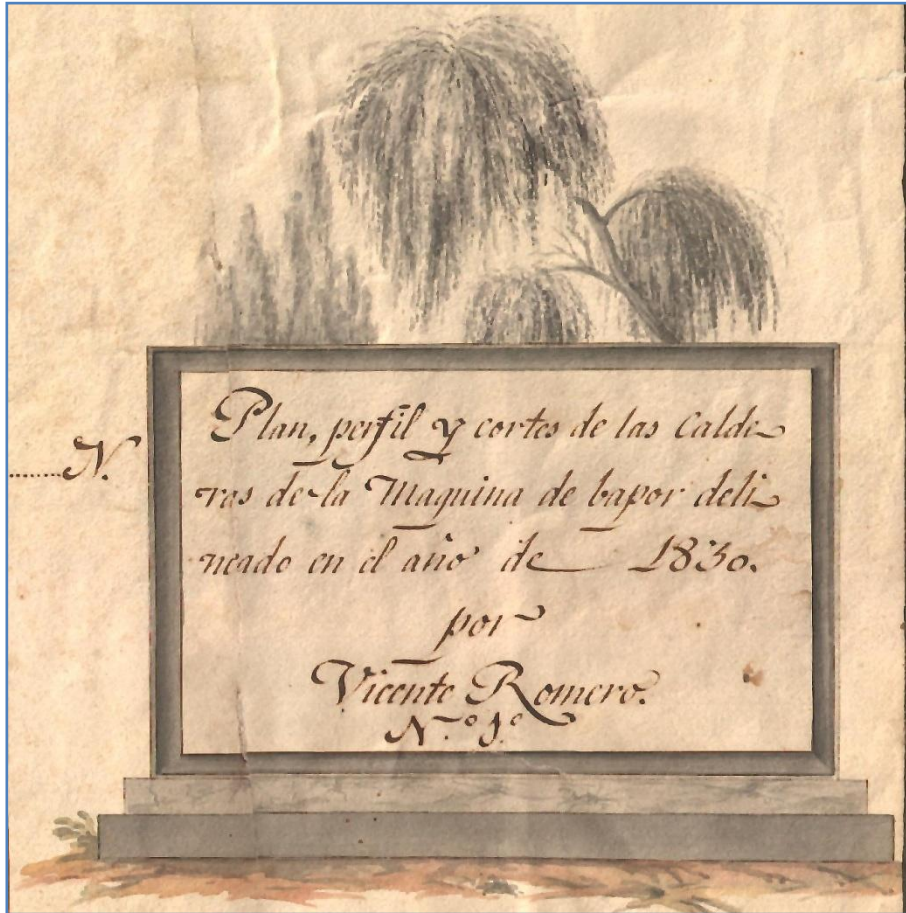 Plan, perfil y cortes de las Calde
ras de la Maquina de bapor deli
neado en el año de 1830.
por
Vicente Romero.
N.º 1.º
N.